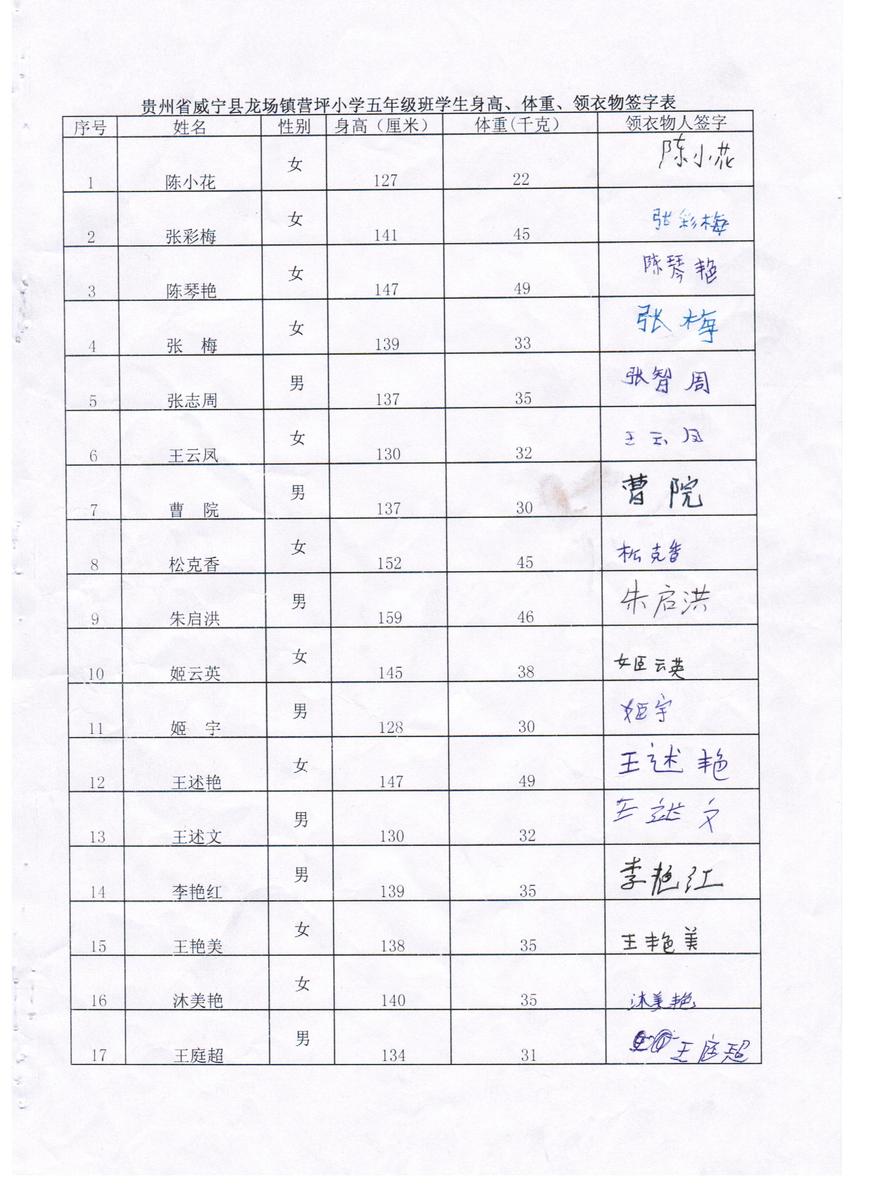 贵州省威宁县龙场镇营坪小学五年级班学生身高、体重、领衣物签字表
序号 姓名 性别 身高（厘米） 体重(千克） 领衣物人签字
1 陈小花 女 127 22 陈小花
2 张彩梅 女 141 45 张彩梅
3 陈琴艳 女 147 49 陈琴艳
4 张 梅 女 139 33 张梅
5 张志周 男 137 35 张智周
6 王云凤 女 130 32 王云凤
7 曹 院 男 137 30 曹院
8 松克香 女 152 45 松克香
9 朱启洪 男 159 46 朱启洪
10 姬云英 女 145 38 姬云英
11 姬 宇 男 128 30 姬宇
12 王述艳 女 147 49 王述艳
13 王述文 男 130 32 王述文
14 李艳红 男 139 35 李艳红
15 王艳美 女 138 35 王艳美
16 沐美艳 女 140 35 沐美艳
17 王庭超 男 134 31 王庭超